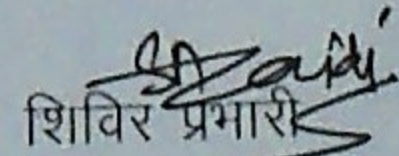 Zaidi
शिविर प्रभारी